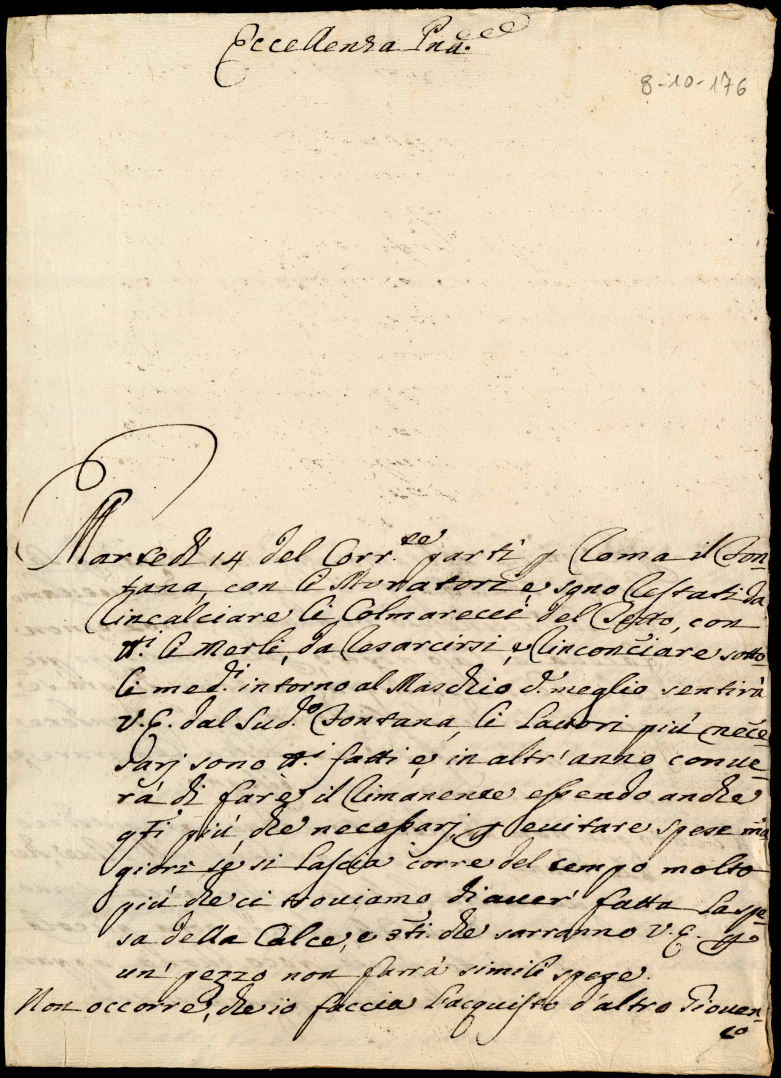 Eccellenza Pna.
8-10-176
Martedi 14 del Corr.te parti p Roma il Fon-
tana, con li Muratori e sono restati da
rincalciare li Colmarecci del Tetto, con
tti li Merli, da resarcirsi, e rinconciare sotto
li med.i intorno al Maschio d. meglio sentirà
V.E. dal Sud.o Fontana, li Lavori più nece-
sarj sono tti fatti e in altr'anno conve-
rà di fare il rimanente essendo anche
qti più che necessarj, p evitare spese ma
giori se si lascia corre del tempo molto
più che ci troviamo di aver' fatta la spe
sa della Calce, e che sarranno V.E. p
un' pezzo non farrà simili spese.
Non occorre, che io faccia l'acquisto d'altro Gioven-
co